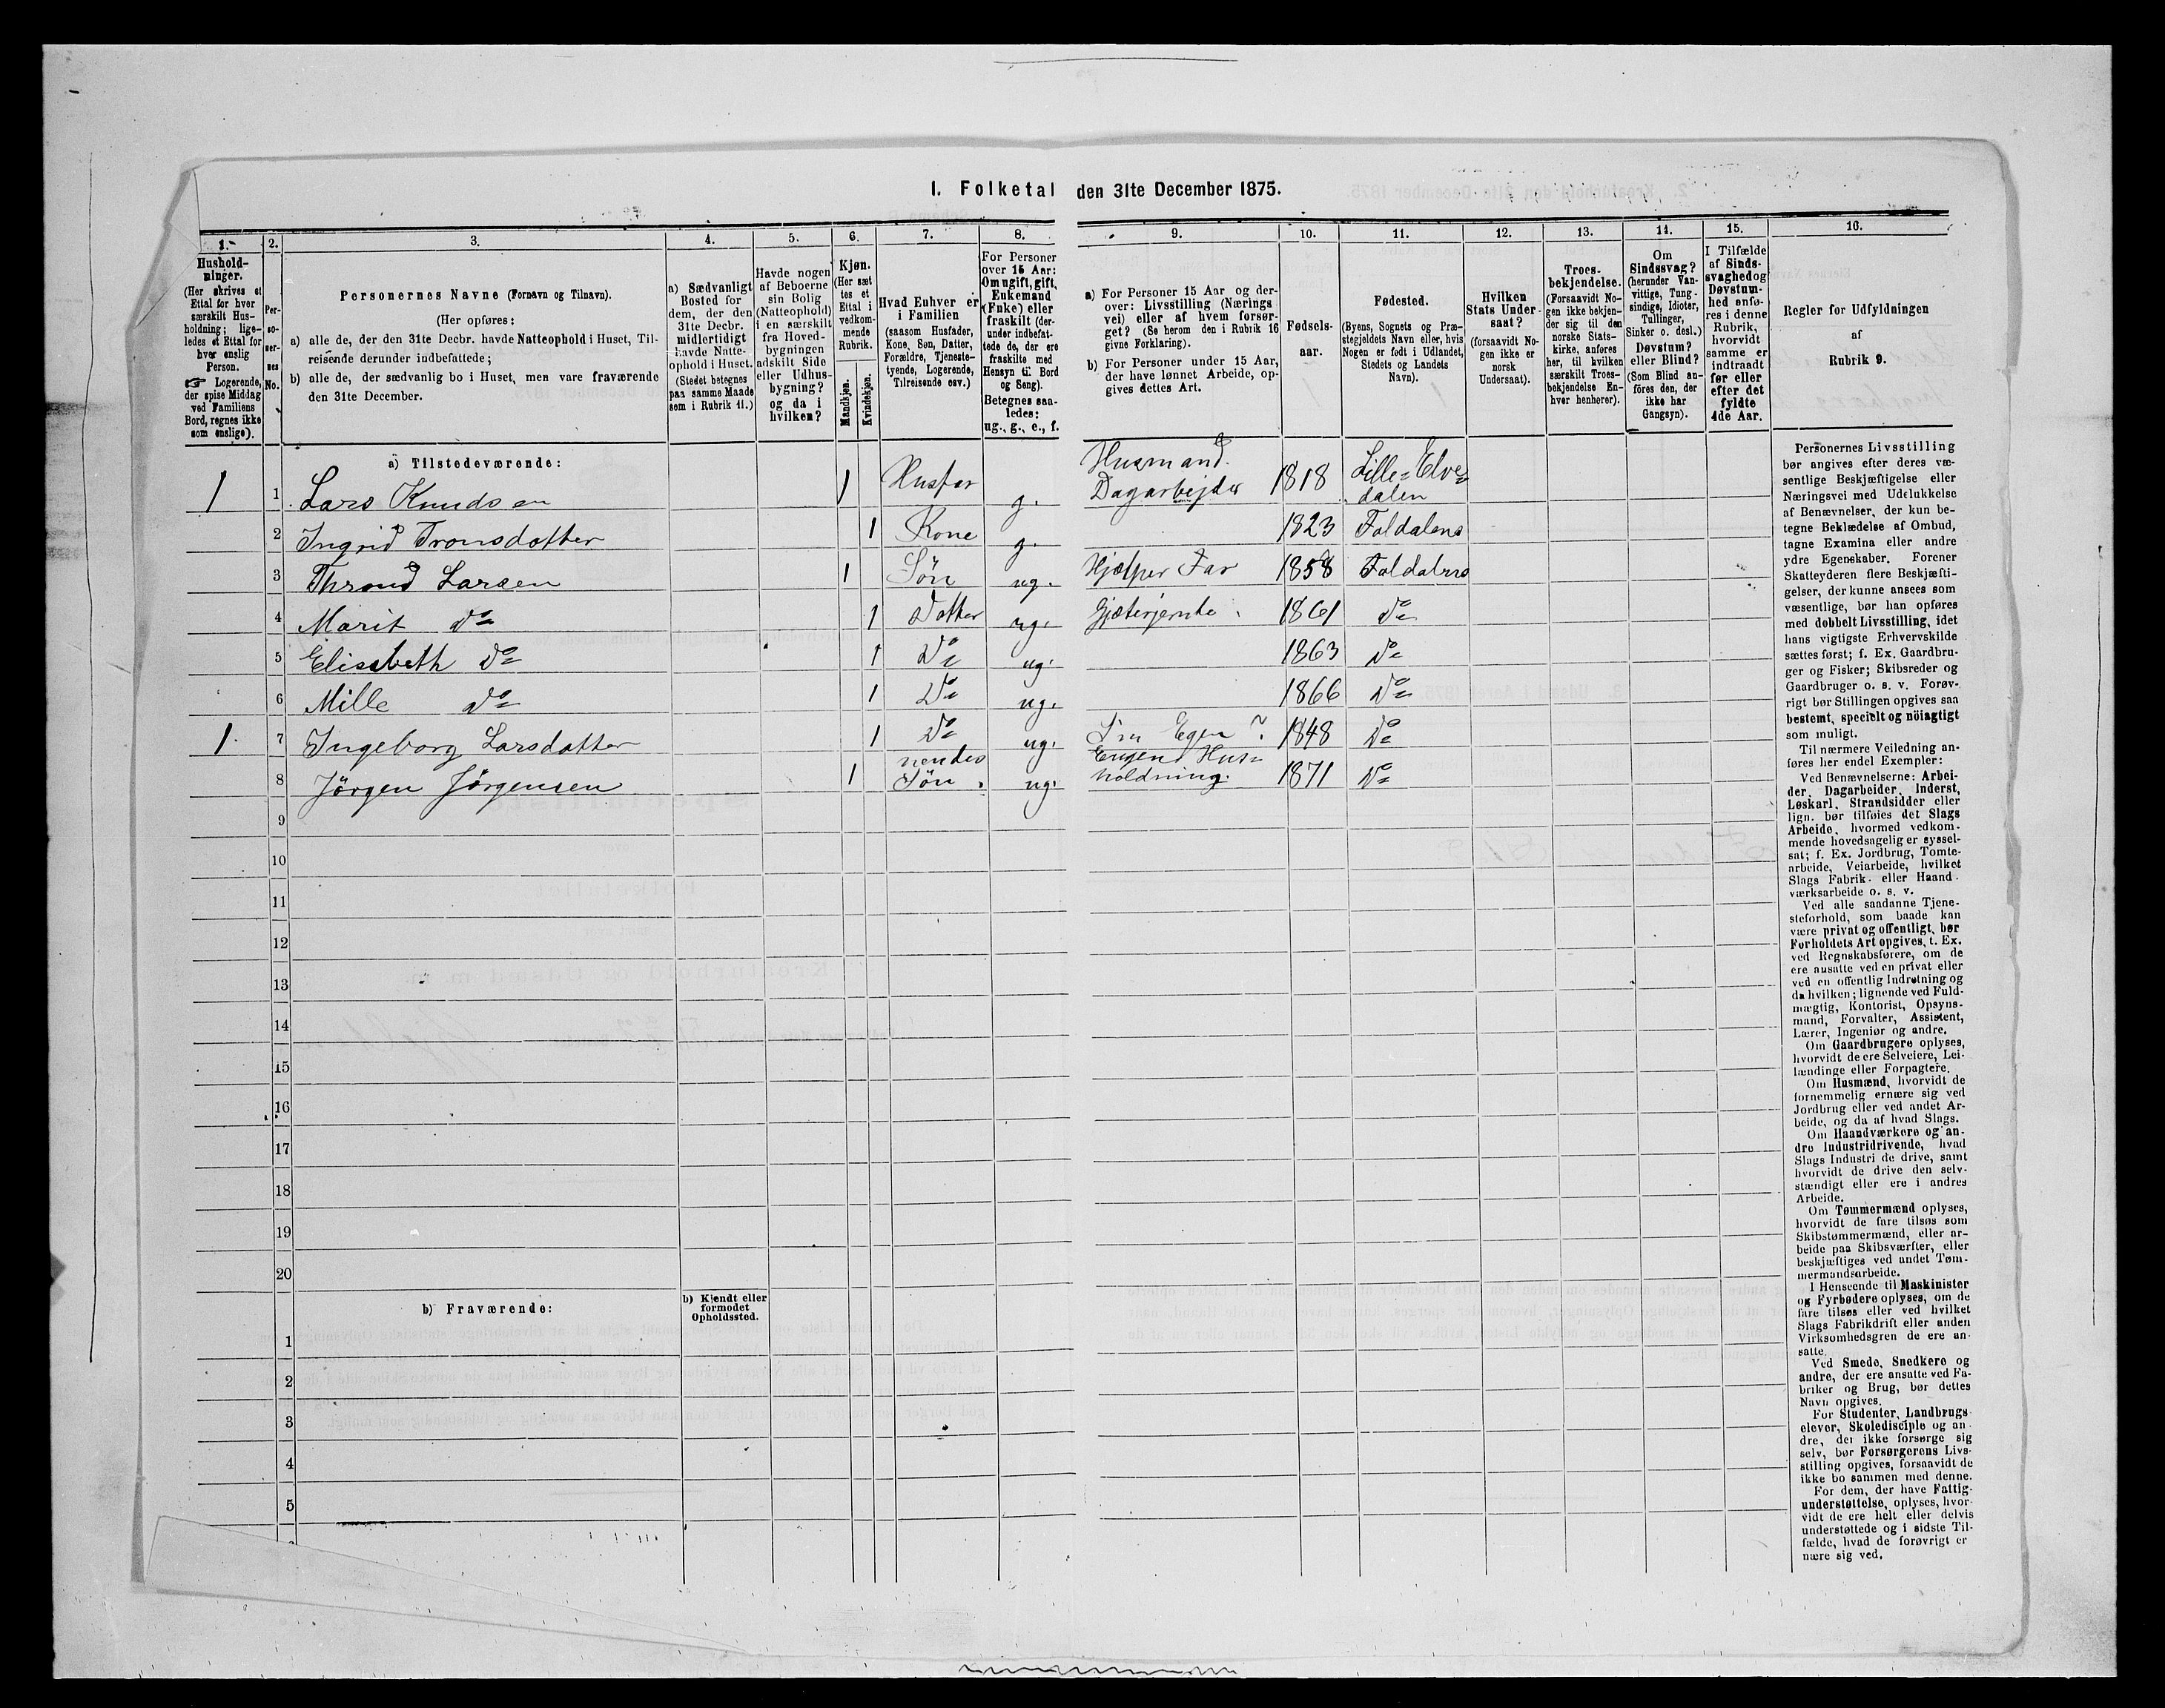 1. Folketal den 31te December 1875.
1.
2.
3.
4.
5.
6.
7.
8.
9.
10.
11.
12.
13.
14.
15.
16.
Hushold-
ninger.
(Her skrives et
Ettal for hver
særskilt Hus-
holdning; lige-
ledes et Ettal for
hver enslig
Person.
☞ Logerende,
der spise Middag
ved Familiens
Bord, regnes ikke
som enslige).
Per-
so-
ner-
nes
No.
Personernes Navne (Fornavn og Tilnavn).
(Her opføres:
a) alle de, der den 31te Decbr. havde Natteophold i Huset, Til-
reisende derunder indbefattede;
b) alle de, der sædvanlig bo i Huset, men vare fraværende
den 31te December.
a) Sædvanligt
Bosted for
dem, der den
31te Decbr.
midlertidigt
havde Natte-
ophold i Huset.
(Stedet betegnes
paa samme Maade
som i Rubrik 11.)
Havde nogen
af Beboerne
sin Bolig
(Natteophold)
i en særskilt
fra Hoved-
bygningen
adskilt Side
eller Udhus-
bygning?
og da i
hvilken?
Kjøn.
(Her sæt
tes et
Ettal i
vedkom-
mende
Rubrik.
Mandkjøn.
Kvindekjøn.
Hvad Enhver er
i Familien
(saasom Husfader,
Kone, Søn, Datter,
Forældre, Tjeneste-
tyende, Logerende,
Tilreisende osv.)
For Personer
over 15 Aar:
Om ugift, gift,
Enkemand
(Enke) eller
fraskilt (der-
under indbefat-
tede de, der ere
fraskilte med
Hensyn til Bord
og Seng).
Betegnes saa-
ledes:
ug., g., e., f.
a) For Personer 15 Aar og der-
over: Livsstilling (Nærings
vei) eller af hvem forsør-
get? (Se herom den i Rubrik 16
givne Forklaring).
b) For Personer under 15 Aar,
der have lønnet Arbeide, op-
gives dettes Art.
Fødsels-
aar.
Fødested.
(Byens, Sognets og Præ-
stegjeldets Navn eller, hvis
Nogen er født i Udlandet,
Stedets og Landets
Navn).
Hvilken
Stats Under-
saat?
(forsaavidt No-
gen ikke er
norsk
Undersaat).
Troes-
bekjendelse.
(Forsaavidt No-
gen ikke bekjen-
der sig til den
norske Stats-
kirke, anføres
her, til hvilken
særskilt Troes-
bekjendelse En-
hver henhører).
Om
Sindssvag?
(herunder Van-
vittige, Tung-
sindige, Idioter,
Tullinger,
Sinker o. desl.)
Døvstum?
eller Blind?
(Som Blind an-
føres den, der
ikke har
Gangsyn).
I Tilfælde
af Sinds-
svaghed og
Døvstum-
hed anfø-
res i denne
Rubrik,
hvorvidt
samme er
indtraadt
før eller
efter det
fyldte
4de Aar.
Regler for Udfyldningen
af
Rubrik 9.
a) Tilstedeværende:
1 1 Lars Knudsen 1 Husfar g. Husmand. Dagarbejder 1818 Lille-Elve-
dalen
2 Ingrid Tronsdatter 1 Kone g. 1823 Foldalens
3 Thrond Larsen 1 Søn ug. Hjælper Far 1858 Foldalens
4 Marit Do 1 Datter ug. Gjæterjente 1861 Do
5 Elisabeth Do 1 Do ug. 1863 Do
6 Mille Do 1 Do ug. 1866 Do
1 7 Ingeborg Larsdatter 1 Do ug. 1848 Do
8 Jörgen Jörgensen 1 Søn ug. 1871 Do
9
10
11
12
13
14
15
16
17
18
19
20
b) Fraværende:
b) Kjendt eller
formodet
Opholdssted.
1
2
3
4
5
Personernes Livsstilling
bør angives efter deres væ-
sentlige Beskjæftigelse eller
Næringsvei med Udelukkelse
af Benævnelser, der kun be-
tegne Beklædelse af Ombud,
tagne Examina eller andre
ydre Egenskaber. Forener
Skatteyderen flere Beskjæfti-
gelser, der kunne ansees som
væsentlige, bør han opføres
med dobbelt Livsstilling, idet
hans vigtigste Erhvervskilde
sættes først; f. Ex. Gaardbru-
ger og Fisker; Skibsreder og
Gaardbruger o. s. v. Forøv-
rigt bør Stillingen opgives saa
bestemt, specielt og nöiagtigt
som muligt.
Til nærmere Veiledning an-
føres her endel Exempler:
Ved Benævnelserne: Arbei-
der, Dagarbeider, Inderst,
Løskarl, Strandsidder eller
lign. bør tilføies det Slags
Arbeide, hvormed vedkom-
mende hovedsagelig er syssel-
sat; f. Ex. Jordbrug, Tomte-
arbeide, Veiarbeide, hvilket
Slags Fabrik- eller Haand-
værksarbeide o. s. v.
Ved alle saadanne Tjene-
steforhold, som baade kan
være privat og offentligt, bør
Forholdets Art opgives, t. Ex.
ved Regnskabsførere, om de
ere ansatte ved en privat eller
ved en offentlig Indretning og
da hvilken; lignende ved Fuld-
mægtig, Kontorist, Opsyns-
mand, Forvalter, Assistent,
Lærer, Ingeniør og andre.
Om Gaardbrugere oplyses,
hvorvidt de ere Selveiere, Lei-
lændinge eller Forpagtere.
Om Husmænd, hvorvidt de
fornemmelig ernære sig ved
Jordbrug eller ved andet Ar-
beide, og da af hvad Slags.
Om Haandværkere og an-
dre Industridrivende, hvad
Slags Industri de drive, samt
hvorvidt de drive den selv-
stændigt eller ere i andres
Arbeide.
Om Tømmermænd oplyses,
hvorvidt de fare tilsøs som
Skibstømmermænd, eller ar-
beide paa Skibsværfter, eller
beskjæftiges ved andet Tøm-
mermandsarbeide.
I Henseende til Maskinister
og Fyrbødere oplyses, om de
fare tilsøs eller ved hvilket
Slags Fabrikdrift eller anden
Virksomhedsgren de ere an-
satte.
Ved Smede, Snedkere og
andre, der ere ansatte ved Fa-
briker og Brug, bør dettes
Navn opgives.
For Studenter, Landbrugs-
elever, Skoledisciple og an-
dre, der ikke forsørge sig
selv, bør Forsørgerens Livs-
stilling opgives, forsaavidt de
ikke bo sammen med denne.
For dem, der have Fattig-
understøttelse, oplyses, hvor-
vidt de ere helt eller delvis
understøttede og i sidste Til-
fælde, hvad de forøvrigt er
nære sig ved.